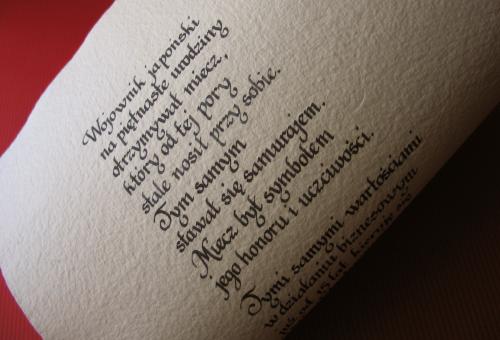 Wojownik japoński
na piętnaste urodziny
otrzymywał miecz,
który od tej pory
stale nosił przy sobie.
Tym samym
stawał się samurajem.
Miecz był symbolem
jego honoru i uczciwości.
Tymi samymi wartościami
w działaniu biznesowym
od 15 lat kieruje się